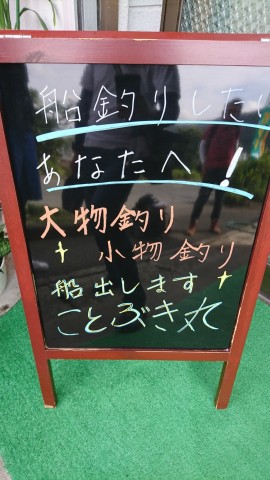 船釣りしたい
あなたへ！
大物釣り
小物釣り
船出します
ことぶき丸